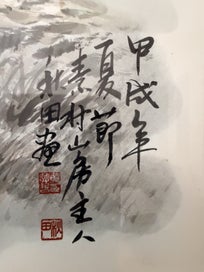 甲戌年
夏節
素村山房主人
田畫